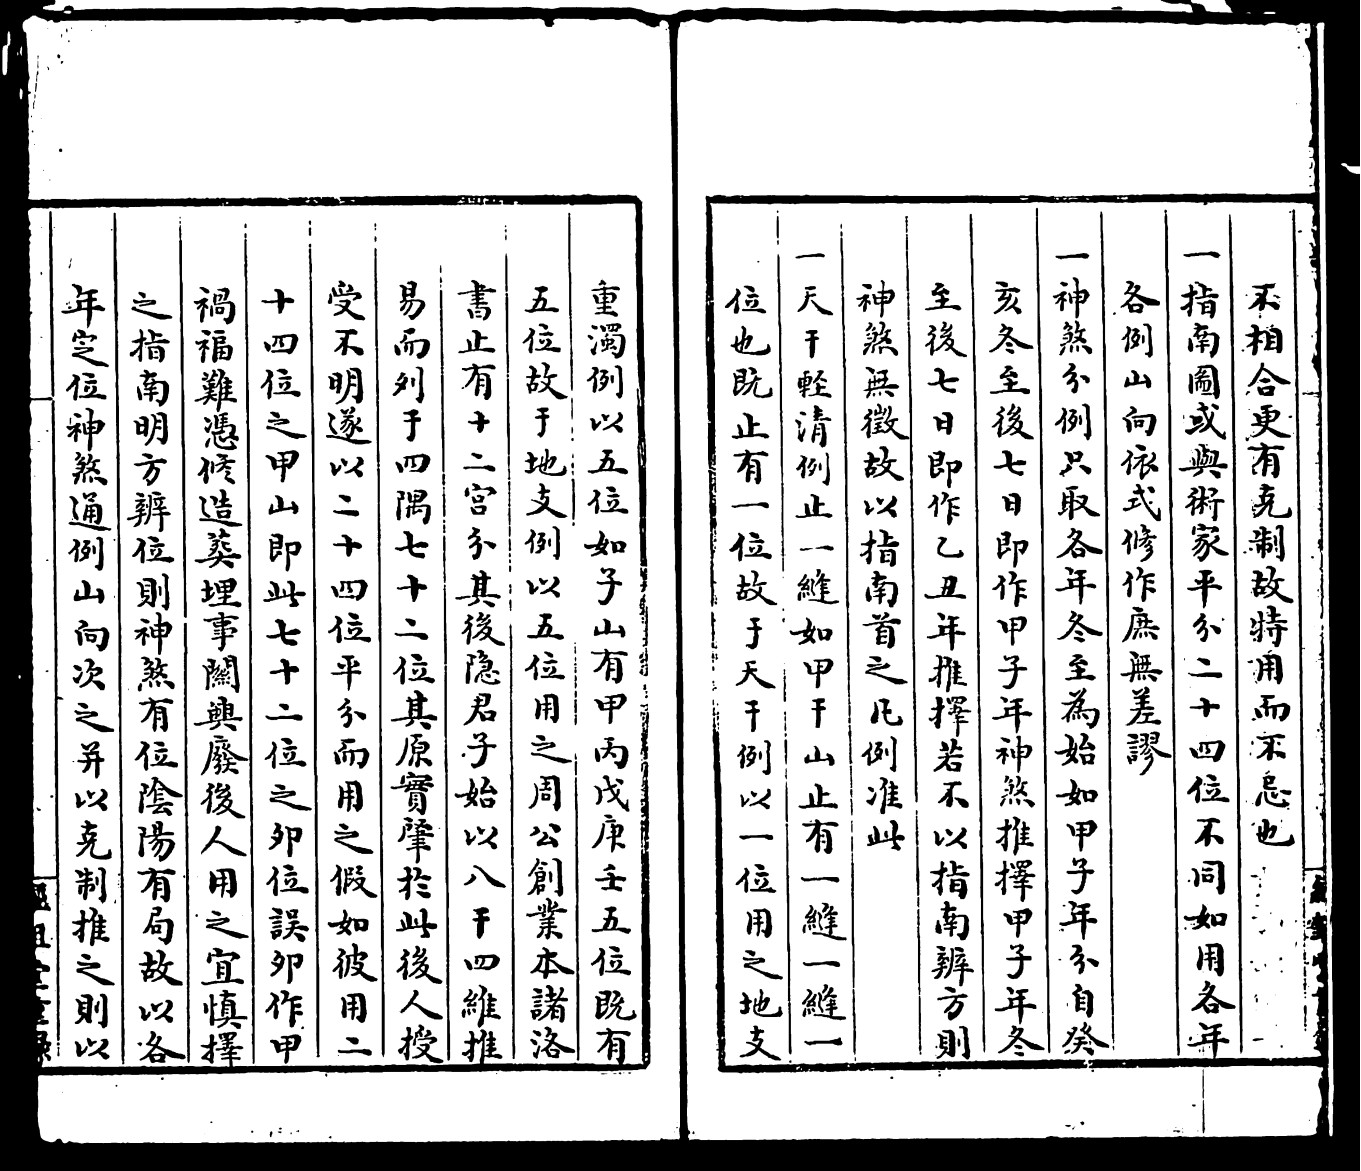 不相合更有克制故特用而不忌也
一指南圖或與術家平分二十四位不同如用各年
各例山向依式修作庶無差謬
一神煞分例只取各年冬至為始如甲子年分自癸
亥冬至後七日即作甲子年神煞推擇甲子年冬
至後七日即作乙丑年推擇若不以指南辨方則
神煞無徵故以指南首之凡例准此
一天干輕清例止一縫如甲干山止有一縫一縫一
位也既止有一位故于天干例以一位用之地支
重濁例以五位如子山有甲丙戊庚壬五位既有
五位故于地支例以五位用之周公創業本諸洛
書止有十二宮分其後隐君子始以八干四維推
易而列于四隅七十二位其原實肇於此後人授
受不明遂以二十四位平分而用之假如彼用二
十四位之甲山即此七十二位之夘位誤夘作甲
禍福難憑修造葬埋事關興廢後人用之宜慎擇
之指南明方辨位則神煞有位陰陽有局故以各
年定位神煞通例山向次之并以克制推之則以